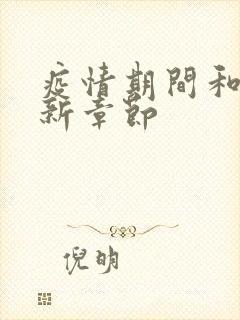 疫情期間和
新章節
倪明